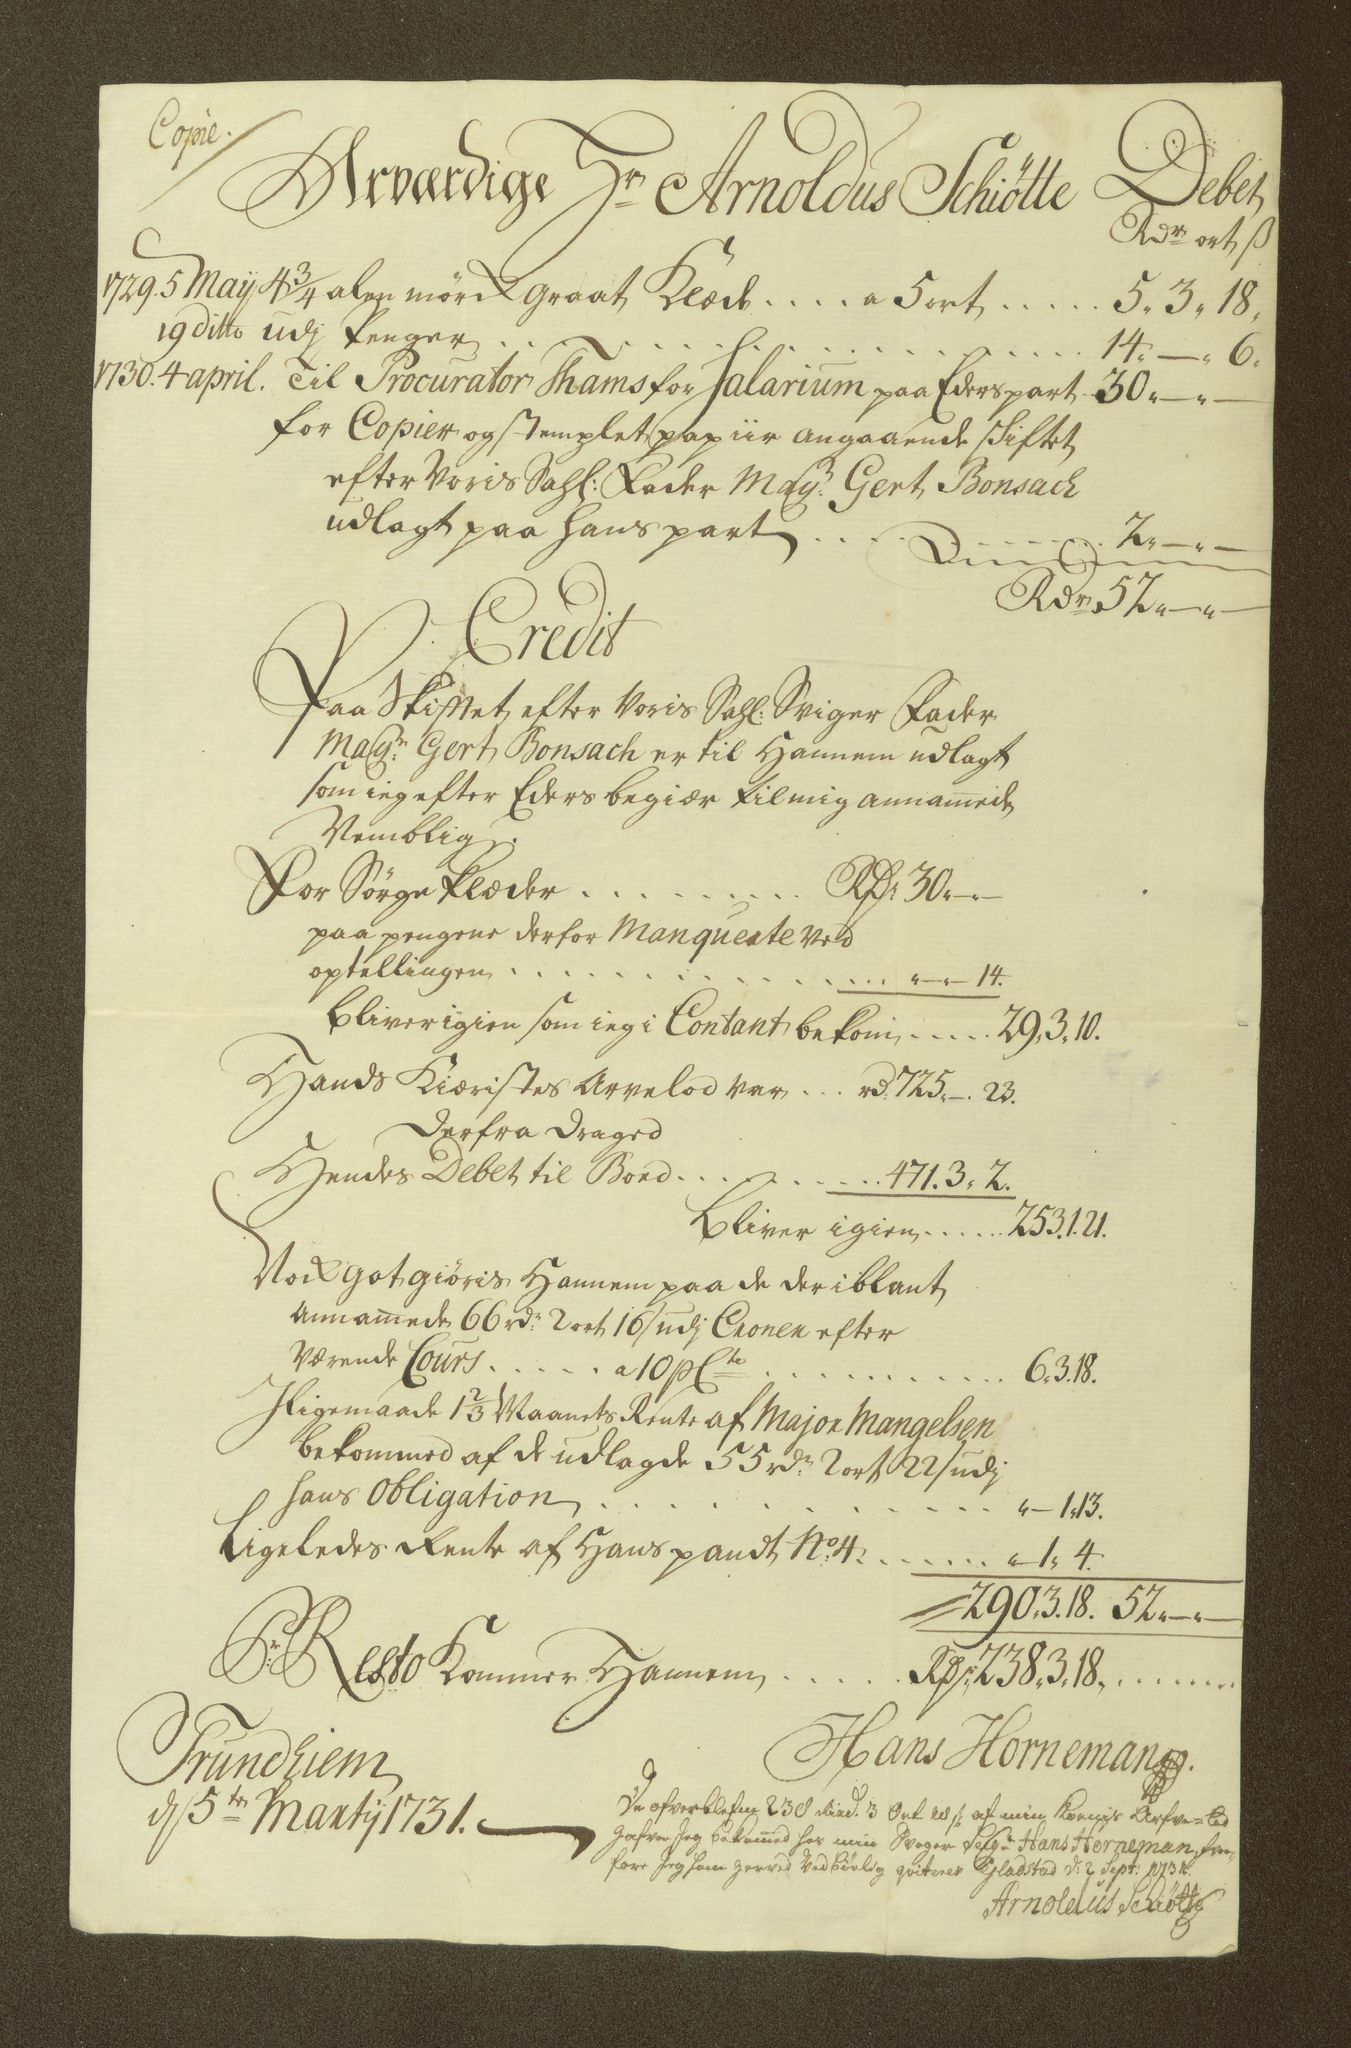 Copie.
Ærværdige Hr Arnoldus Schiötte Debet
Rdr ort ß
1729. 5 May 4 3/4 alen mörck graat Klæde .... a 5 ort ..... 5. 3. 18.
19 Ditto udj Penger ..... 14. — . 6.
1730. 4 april. Til Procurator Thams for Salarium paa Eders part 30. — . —
for Copier og stemplet papiir angaaende skiftet
efter Voris Sahl: Fader Magr. Gert Bonsach
udlagt paa hans part ..... 2. — . —
Rdr. 52. — . —
Credit
Paa Skiftet efter Voris Sahl: Sviger Fader
Magr. Gert Bonsach er til Hannem udlagt
som ieg efter Eders begiær til mig annammede
Nemblig.
For Sörge Klæder ......... Rdr 30. — . —
paa pengene derfor Manquerte ved
optellingen ..... . — . — 14.
bliver igien som ieg i Contant bekom ..... 29. 3. 10.
Hands Kiæristes Arvelod var ... rd. 725. — . 23.
derfra draged
Hendes Debet til Boed ..... 471. 3. 2.
bliver igien ...... 253. 1. 21.
Nock got giöris Hannem paa de der iblant
annammede 66 rdr 2 ort 16 ß udj Croner efter
Værende Cours ..... a 10 pCto ..... 6. 3. 18.
Iligemaade 1 2/3 Maanets Rente af Major Mangelsen
bekommed af de udlagde 55 rdr 2 ort 22 ß udj
hans Obligation ..... . — 1. 13.
Ligeledes Rente af Hans pandt No. 4. ..... . — 1. 4.
290. 3. 18. 52. — . —
Pr. Resto Kommer Hannem ..... Rdr. 238. 3. 18. ........
Trundhiem
d 5ten Martij 1731.
Hans Hornemann.
De ofverblefne 238 Rixd. 3 Ort 18 ß. af min Kones Arfve=Lod
hafver Jeg bekommed hos min Svoger Hans Horneman, hvor
fore Jeg ham herved Vedbörlig qviterer Gladstad d. 2 Sept: 173
Arnoldus Schiötte